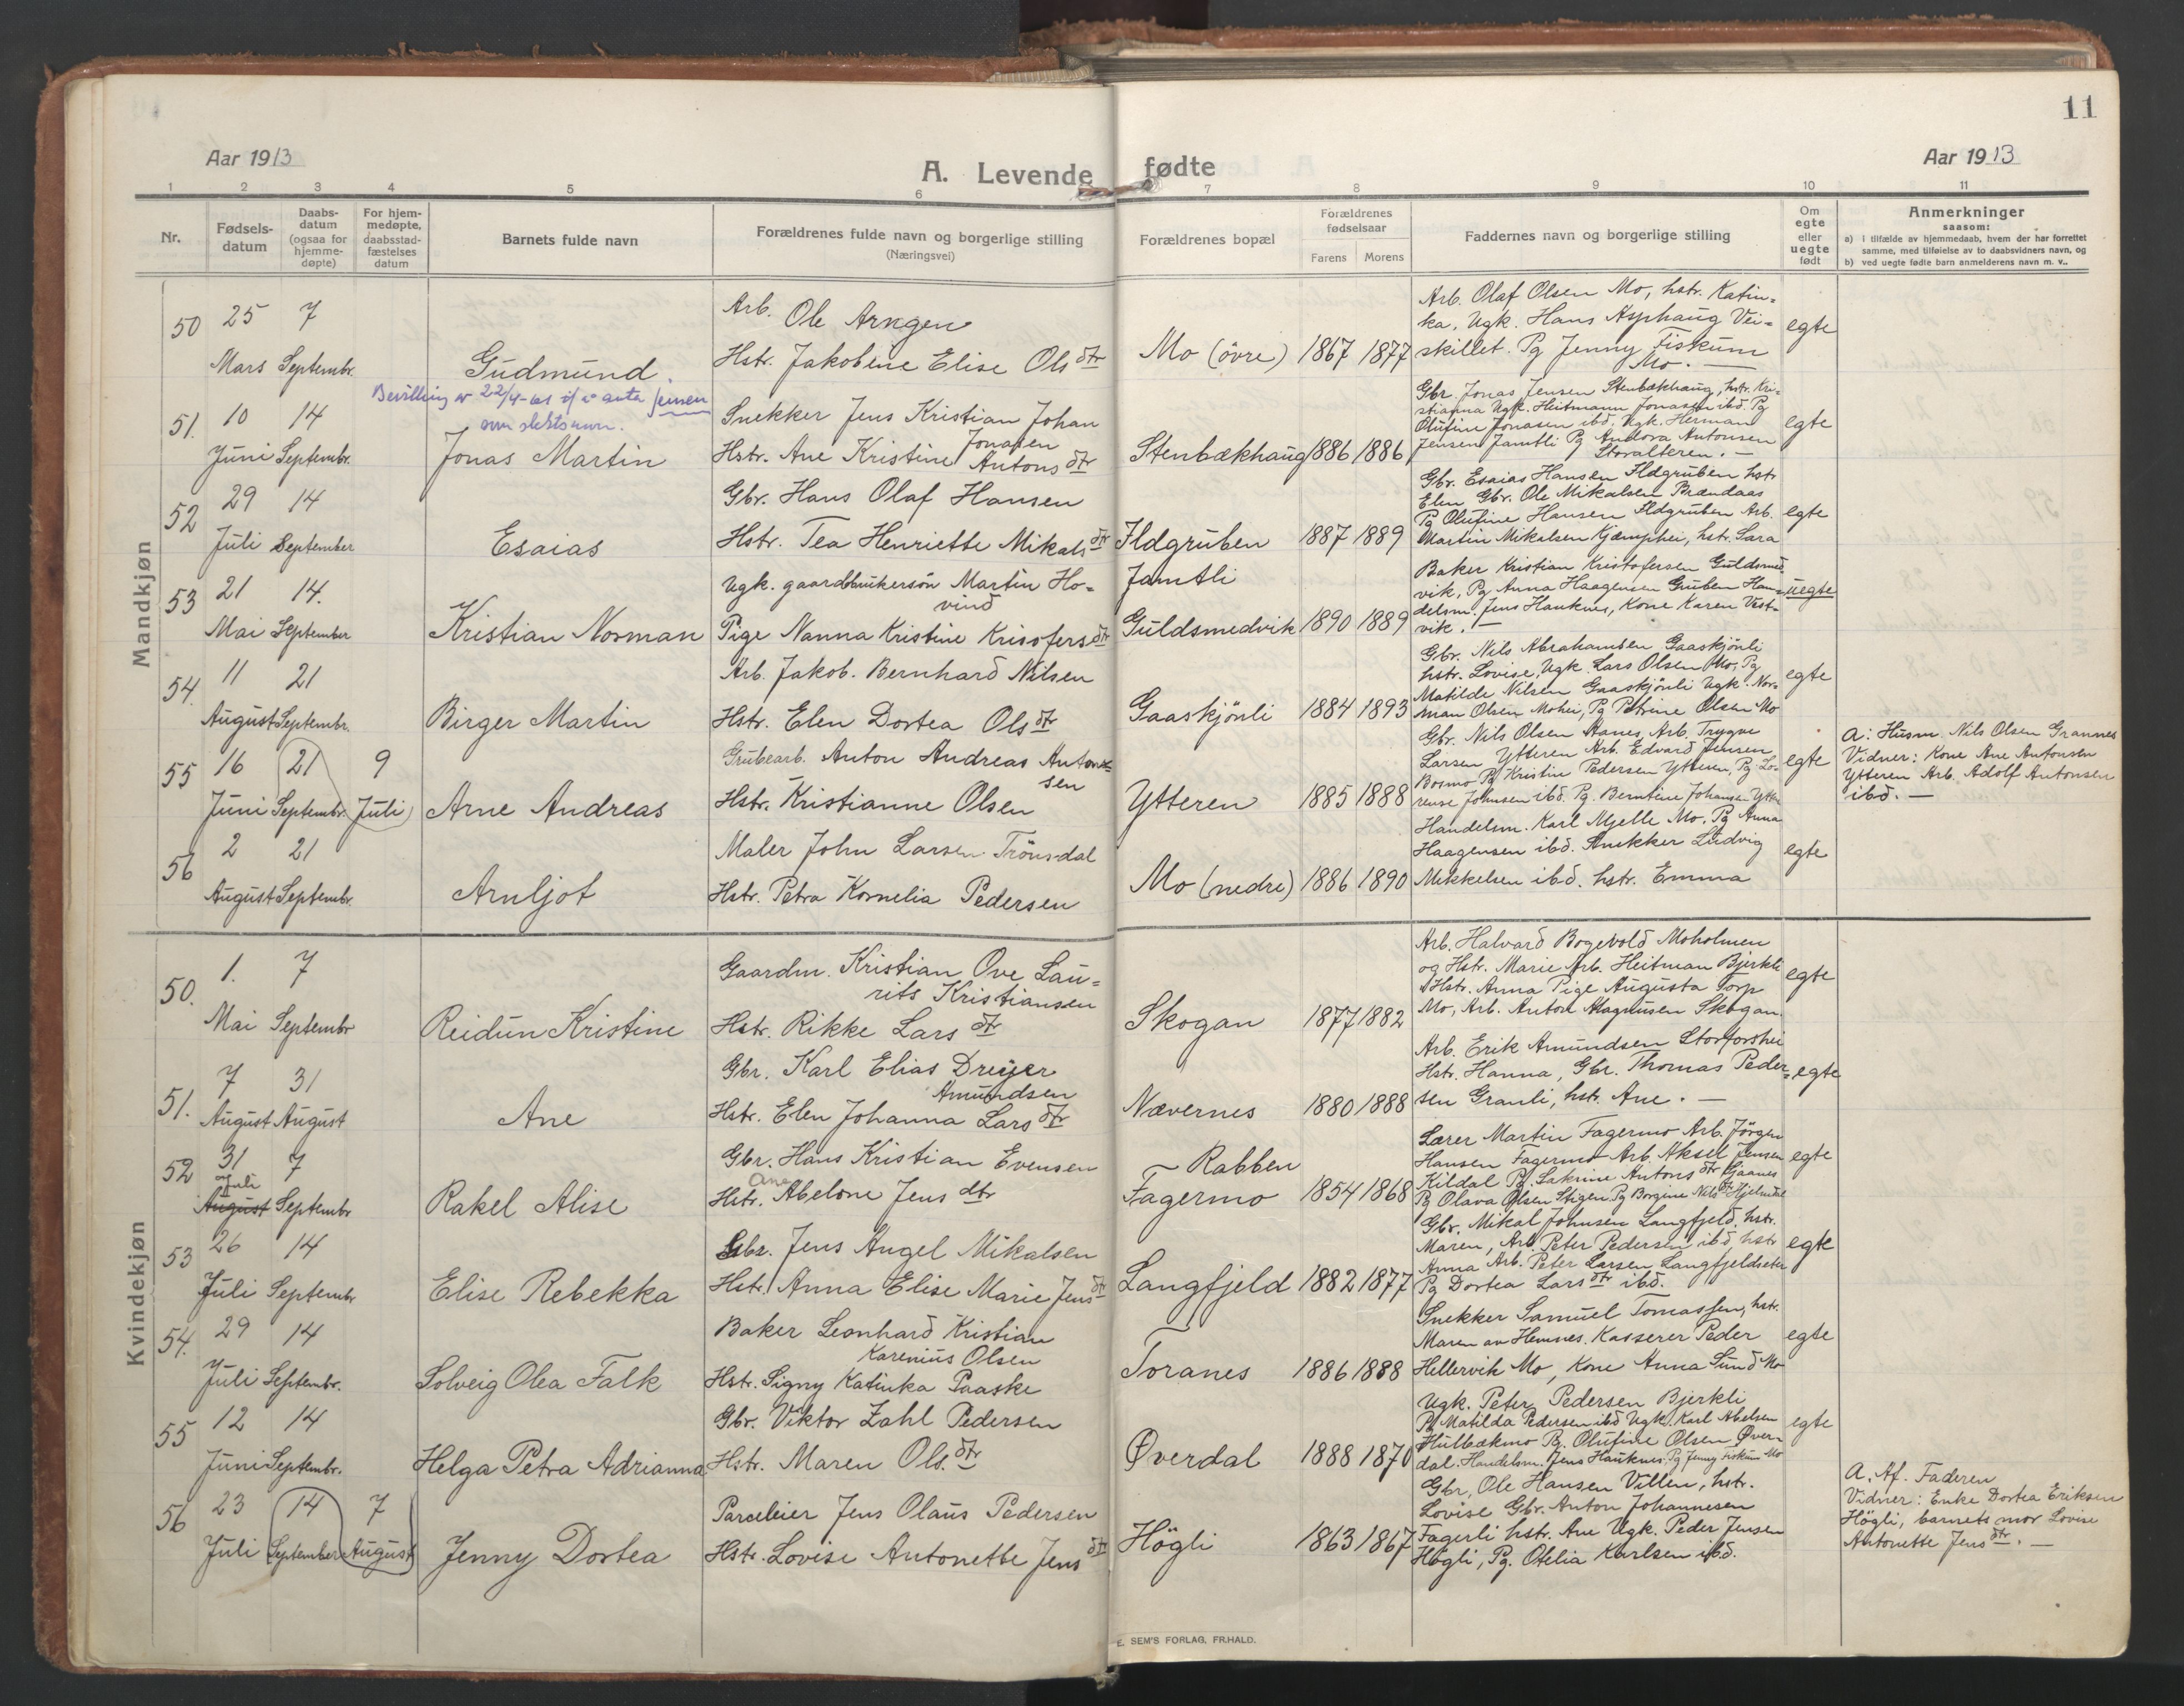 11
Aar 1913
A. Levende fødte
Aar 1913
1 2 3 4 5 6 7 8 9 10 11
Nr.
Fødsels-
datum
Daabs-
datum
(ogsaa for
hjemme-
døpte)
For hjem-
medøpte,
daabsstad-
fæstelses
datum
Barnets fulde navn
Forældrenes fulde navn og borgerlige stilling
(Næringsvei)
Forældrenes bopæl
Forældrenes
fødselsaar
Farens Morens
Faddernes navn og borgerlige stilling
Om
egte
eller
uegte
født
Anmerkninger
saasom:
a) i tilfælde av hjemmedaab, hvem der har forrettet
samme, med tilføielse av to daabsvidners navn, og
b) ved uegte fødte barn anmelderens navn m. v..
Mandkjøn
50 25 7
Mars Septembr.
Gudmund
Arb. Ole Arngen
Hstr. Jakobine Elise Ols dtr
Mo (övre) 1867 1877
Arb. Olaf Olsen Mo, hstr. Katin=
ka, Ugk. Hans Asphaug Vei=
skillet. Pg Jenny Fiskum
Mo. —
egte
Bevilling av 22/4-61 til å anta Jensen
som slektsnavn.
51. 10 14
Juni Septembr.
Jonas Martin
Snekker Jens Kristian Johan
Jonassen
Hstr. Ane Kristine Antons dtr
Stenbækhaug 1886 1886
Gbr. Jonas Jensen Stenbækhaug, hstr. Kri-
stianna Ugk. Heitmann Jonassen ibd. Pg
Olufine Jonasen ibd. Ugk. Herman
Jensen Jamtli Pg Andora Antonsen
Storalteren. —
egte
52 29 14
Juli September
Esaias
Gbr. Hans Olaf Hansen
Hstr. Tea Henriette Mikals dtr
Ildgruben 1887 1889
Gbr. Esaias Hansen Ildgruben hstr
Elen Gbr. Ole Mikalsen Brændaas
Pg Olufine Hansen Ildgruben Arb.
Martin Mikalsen Kjæmphei, hstr. Sara
egte
53 21 14.
Mai September
Kristian Norman
Ugk. gaardbrukersön Martin Ho-
vind
Pige Nanna Kristine Krisofers dtr
Jamtli
Guldsmedvik 1890 1889
Baker Kristian Kristofersen Guldsmed-
vik, Pg Anna Haagensen Gruben Han-
delsm. Jens Hauknes, Kone Karen Vest-
vik. —
uegte
54. 11 21
August Septembr.
Birger Martin
Arb. Jakob. Bernhard Nilsen
Hstr. Elen Dortea Ols dtr
Gaaskjönli 1884 1893
Gbr. Nils Abrahamsen Gaaskjönli
hstr. Lovise, Ugk. Lars Olsen Mo, Pg
Matilde Nilsen Gaaskjönli Ugk. Nor-
man Olsen Mohei, Pg Petrine Olsen Mo
egte
55 16 21 9
Juni Septembr. Juli
Arne Andreas
Grubearb. Anton Andreas Anton-
sen
Hstr. Kristianne Olsen
Ytteren 1885 1888
Gbr. Nils Olsen Hanes, Arb. Trygve
Larsen Ytteren Arb. Edvard Jensen
Bosmo Pg Kristin Pedersen Ytteren, Pg Lo-
rense Johnsen ibd. Pg. Berntine Johansen Ytter
egte
A: Husm. Nils Olsen Grannes
Vidner: Kone Ane Antonsen
Ytteren Arb. Adolf Antonsen
ibd. —
56 2 21
August Septembr.
Arnljot
Maler John Larsen Trönsdal
Hstr. Petra Kornelia Pedersen
Mo (nedre) 1886 1890
Handelsm. Karl Mjelle Mo, Pg Anna
Haagensen ibd. Snekker Ludvig
Mikkelsen ibd. hstr. Emma
egte
Kvindekjøn
50. 1. 7
Mai Septembr
Reidun Kristine
Gaardm. Kristian Ove Lau-
rits Kristiansen
Hstr. Rikke Lars dtr
Skogan 1877 1882
Arb. Halvard Bogevold Moholmen
og Hstr. Marie Arb. Heitman Bjerkli
Hstr. Anna Pige Augusta Torp
Mo, Arb. Anton Magnusen Skogan.
egte
51. 7 31
August August
Ane
Gbr. Karl Elias Dreyer
Amundsen
Hstr. Elen Johanna Lars dtr
Nævernes 1880 1888
Arb. Erik Amundsen Storforshei
Hstr. Hanna, Gbr. Thomas Peder-
sen Granli, hstr. Ane. —
egte
52 31 7
Juli
August Septembr
Rakel Alise
Gbr. Hans Kristian Evensen
Ane
Hstr. Abelone Jens dtr
Rabben
Fagermo 1854 1868
Lærer Martin Fagermo Arb. Jörgen
Hansen Fagermo Arb. Aksel Jensen
Kildal Pg. Sakrine Antons dtr
Pg Olava Olsen Stigen Pg Borgine Nils dtr
egte
53 26 14
Juli Septembr
Elise Rebekka
Gbr. Jens Angel Mikalsen
Hstr. Anna Elise Marie Jens dtr
Langfjeld 1882 1877
Gbr. Mikal Johnsen Langfjeld, hstr.
Maren, Arb. Peter Pedersen ibd, hstr
Anna Arb. Peter Larsen Langfjeldseter
Pg Dortea Lars dtr ibd.
egte
54. 29 14
Juli Septembr.
Solveig Olea Falk
Baker Leonhard Kristian
Karenius Olsen
Hstr. Signy Katinka Paaske
Toranes 1886 1888
Snekker Samuel Tomassen, hstr.
Maren av Hemnes. Kasserer Peder
Hellervik Mo, Kone Anna Sund Mo
egte
55 12 14
Juni Septembr.
Helga Petra Adrianna
Gbr. Viktor Zahl Pedersen
Hstr. Maren Ols. dtr
Øverdal 1888 1870
Ugk. Peter Pedersen Bjerkli
Pg Matilda Pedersen ibd Ugk. Karl Abelsen
Hulbækmo Pg. Olufine Olsen Øver-
dal. Handelsm. Jens Hauknes. Pg Jenny Fiskum Mo
egte
56 23 14 7
Juli September August
Jenny Dortea
Parceleier Jens Olaus Pedersen
Hstr. Lovise Antonette Jens dtr
Högli 1863 1867
Gbr. Ole Hansen Villen, hstr.
Lovise Gbr. Anton Johannesen
Fagerli hstr. Ane Ugk. Peder Jensen
Högli, Pg. Otelia Karlsen ibd.
A. Af. Faderen
Vidner: Enke Dortea Eriksen
Högli, barnets mor Lovise
Antonette Jens dtr. —
E. SEM'S FORLAG, FR.HALD.